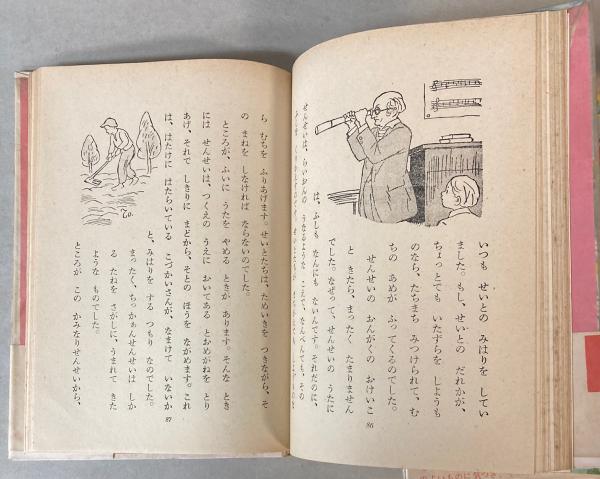 いつも せいとの みはりを してい
ました。もし、せいとの だれかが、
ちょっとでも いたずらを しようも
のなら、たちまち みつけられて、む
ちの あめが ふってくるのでした。
せんせいの おんがくの おけいこ
と きたら、まったく たまりません
でした。なぜって、せんせいの うたに
は、ふしも なんにも ないんです。それだのに、
せんせいは、らいおんの うなるような こえで、なんべんでも、その
86
ら むちを ふりあげます。せいとたちは、ためいきを つきながら、そ
の まねを しなければ ならないのでした。
ところが、ふいに うたを やめる ときが あります。そんな とき
には せんせいは、つくえの うえに おいてある とおめがねを とり
あげ、それで しきりに まどから、そとの ほうを ながめます。これ
は、はたけに はたらいている こづかいさんが、なまけて いないか
と、みはりを する つもり なのでした。
まったく、ちっかぁんせんせいは しか
る たねを さがしに、うまれて きた
ような ものでした。
ところが この かみなりせんせいから、
87